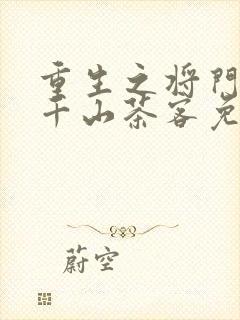 重生之将门
千山茶客免
蔚空